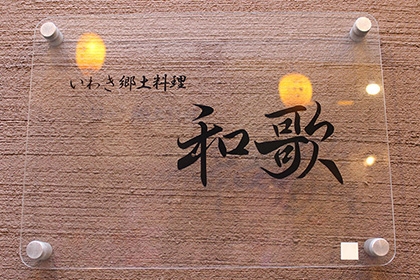 いわき郷土料理
和歌